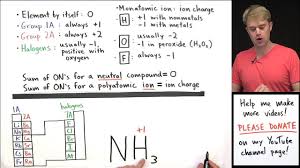 • Element by itself: 0
• Group 1A: always +1
• Group 2A: always +2
• Halogens: usually -1,
positive with
oxygen
• Monatomic ion: ion charge
H +1 with nonmetals
-1 with metals
O usually -2
-1 in peroxide (H₂O₂)
F always -1
Sum of ON's for a neutral compound = 0
Sum of ON's for a polyatomic ion = ion charge
1A 2A
halogens
+1
NH₃
Help me
make more
videos!
PLEASE DONATE
on my
YouTube
channel page!